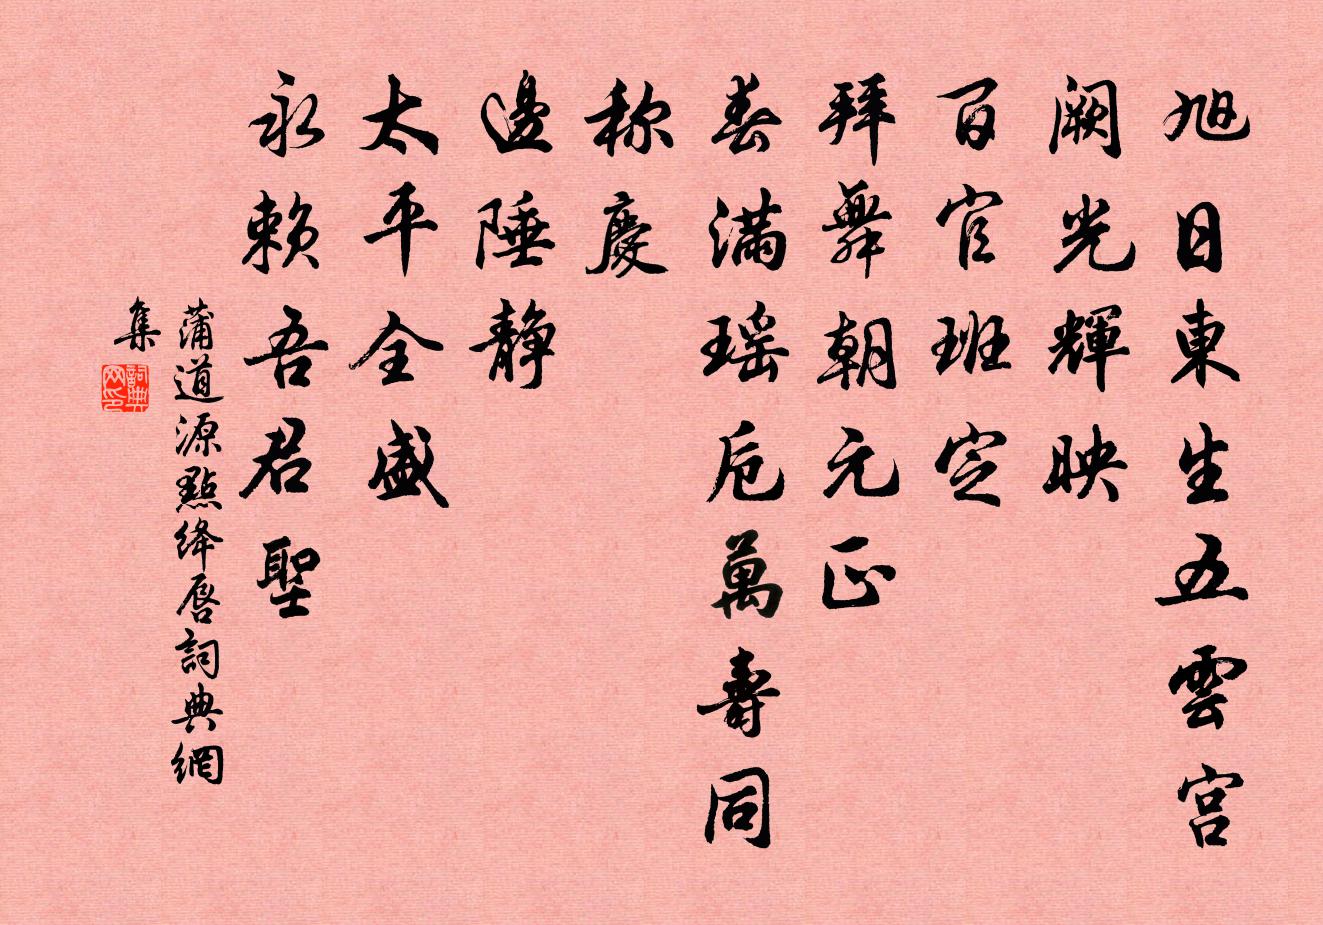 旭日東生五雲宮
闕光輝映
百官班定
拜舞朝元正
春滿瑶卮萬壽同
称慶
邊陲静
太平全盛
永赖吾君聖
蒲道源點绛唇詞典網
集
詞典
网印